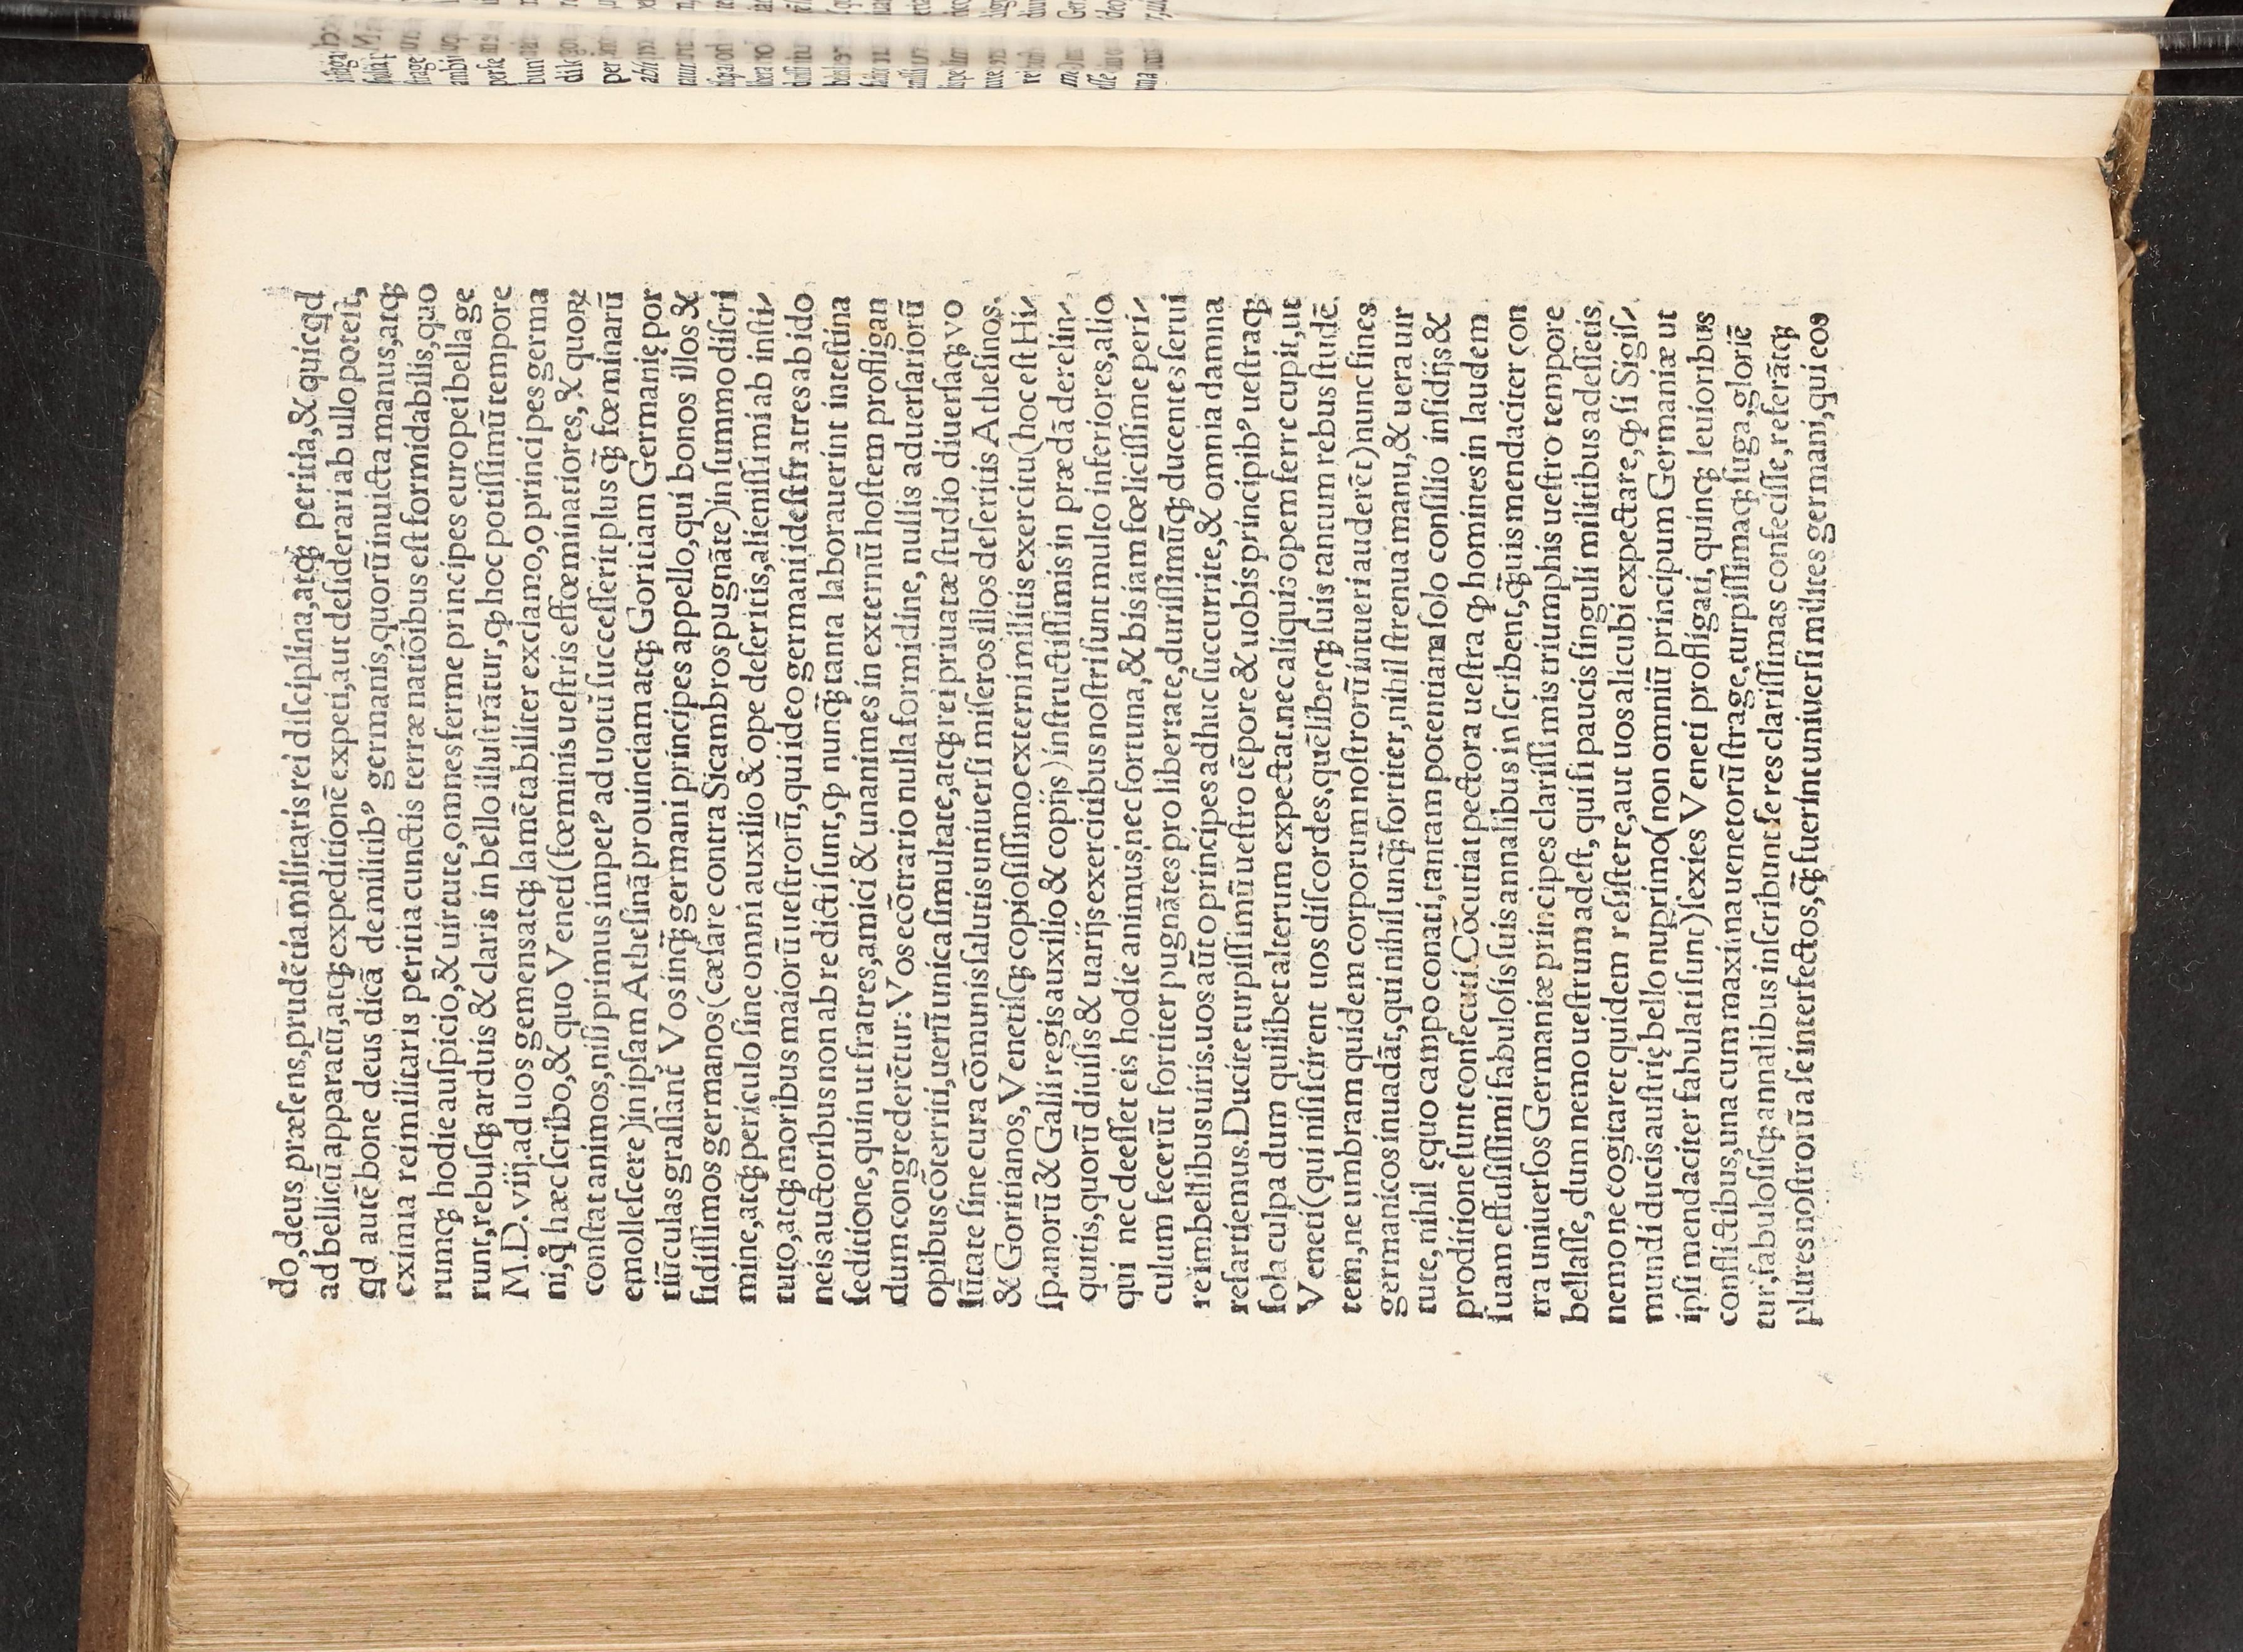 do, deus præſens, prudētia militaris rei diſciplina, atqꝫ peritia, & quicqd
ad bellicū apparatū, atqꝫ expeditionē expeti, aut deſiderari ab ullo poteſt,
qd autē bone deus dicā de militibꝰ germanis, quorū inuicta manus, atqꝫ
eximia rei militaris peritia cunctis terræ natiōibus eſt formidabilis, quo
rumqꝫ hodie auſpicio, & uirtute, omnes ferme principes europei bella ge
runt, rebuſqꝫ arduis & claris in bello illuſtrātur, ꝙ hoc potiſſimū tempore
M.D.viij. ad uos gemens atqꝫ lamētabiliter exclamo, o principes germa
ni, q̊ hæc ſcribo, & quo Veneti (fœminis ueſtris effœminatiores, & quoꝝ
conſtat animos, niſi primus impetꝰ ad uotū ſucceſſerit plus qꝫ̄ fœminarū
emolleſcere) in ipſam Atheſinā prouinciam atqꝫ Goritiam Germanię por
tiūculas graſſant᷑ Vos inqꝫ̄ germani principes appello, qui bonos illos &
fidiſſimos germanos (cæſare contra Sicambros pugnāte) in ſummo diſcri
mine, atqꝫ periculo ſine omni auxilio & ope deſeritis, alieniſſimi ab inſti⸗
tuto, atqꝫ moribus maiorū ueſtrorū, qui ideo germani ideſt fratres ab ido
neis auctoribus non ab re dicti ſunt, ꝙ nunqꝫ̄ tanta laborauerint inteſtina
ſeditione, quin ut fratres, amici & unanimes in externū hoſtem profligan
dum congrederētur: Vos ecōtrario nulla formidine, nullis aduerſariorū
opibus cōterriti, uerū unica ſimultate, atqꝫ rei priuatæ ſtudio diuerſaqꝫ vo
lūtate ſine cura cōmunis ſalutis uniuerſi miſeros illos deſeritis Atheſinos.
& Goritianos, Venetiſqꝫ copioſiſſimo externi militis exercitu (hoc eſt Hi⸗
ſpanorū & Galli regis auxilio & copijs) inſtructiſſimis in prædā derelin⸗
quitis, quorū diuiſis & uarijs exercitibus noſtri ſunt multo inferiores, alio
qui nec deeſſet eis hodie animus, nec fortuna, & bis iam fœliciſſime peri⸗
culum fecerūt fortiter pugnātes pro libertate, duriſſimūqꝫ ducentes ſerui
re imbellibus uiris. uos aūt o principes adhuc ſuccurrite, & omnia damna
reſartiemus. Ducite turpiſſimū ueſtro tēpore & uobis principibꝰ ueſtraqꝫ
ſola culpa dum quilibet alterum expectat. nec aliquis opem ferre cupit, ut
Veneti (qui niſi ſcirent uos diſcordes, quēlibetqꝫ ſuis tantum rebus ſtudē
tem, ne umbram quidem corporum noſtrorū intueri auderēt) nunc fines
germanicos inuadāt, qui nihil unqꝫ̄ fortiter, nihil ſtrenua manu, & uera uir
tute, nihil ęquo campo conati, tantam potentiam ſolo conſilio inſidijs &
proditione ſunt conſecuti. Cōcutiat pectora ueſtra ꝙ homines in laudem
ſuam effuſiſſimi fabuloſis ſuis annalibus inſcribent, qꝫ̄uis mendaciter con
tra uniuerſos Germaniæ principes clariſſimis triumphis ueſtro tempore
bellaſſe, dum nemo ueſtrum adeſt, qui ſi paucis ſinguli militibus adeſſetis
nemo ne cogitaret quidem reſiſtere, aut uos alicubi expectare, ꝙ ſi Sigiſ⸗
mundi ducis auſtrię bello nuprimo (non omniū principum Germaniæ ut
ipſi mendaciter fabulati ſunt) ſexies Veneti profligati, quinqꝫ leuioribus
conflictibus, una cum maxima uenetorū ſtrage, turpiſſimaqꝫ fuga, gloriē
tur, fabuloſiſqꝫ annalibus inſcribunt ſe res clariſſimas confeciſſe, referātqꝫ
plures noſtrorū a ſe interfectos, qꝫ̄ fuerint uniuerſi milites germani, qui eos